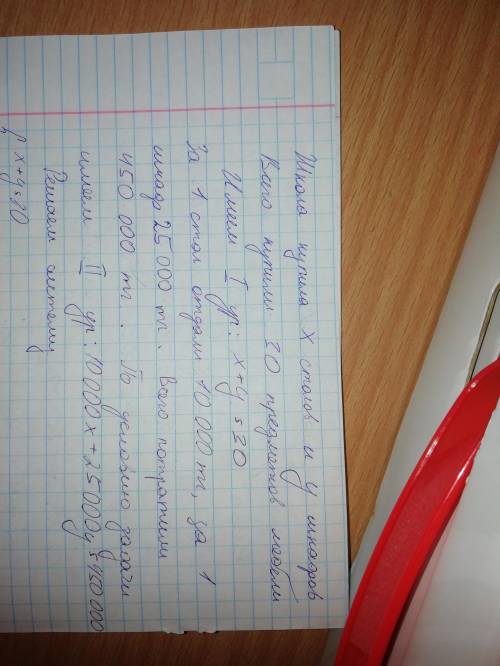 Школа купила x столов и y шкафов
Всего купили 30 предметов мебели
Имеем I ур: x+y=30
За 1 стол отдали 10 000 тг, за 1
шкаф 25 000 тг. Всего потратили
450 000 тг. По условию задачи
имеем II ур: 10 000x + 25000y = 450 000
Решаем систему
{ x+y=30